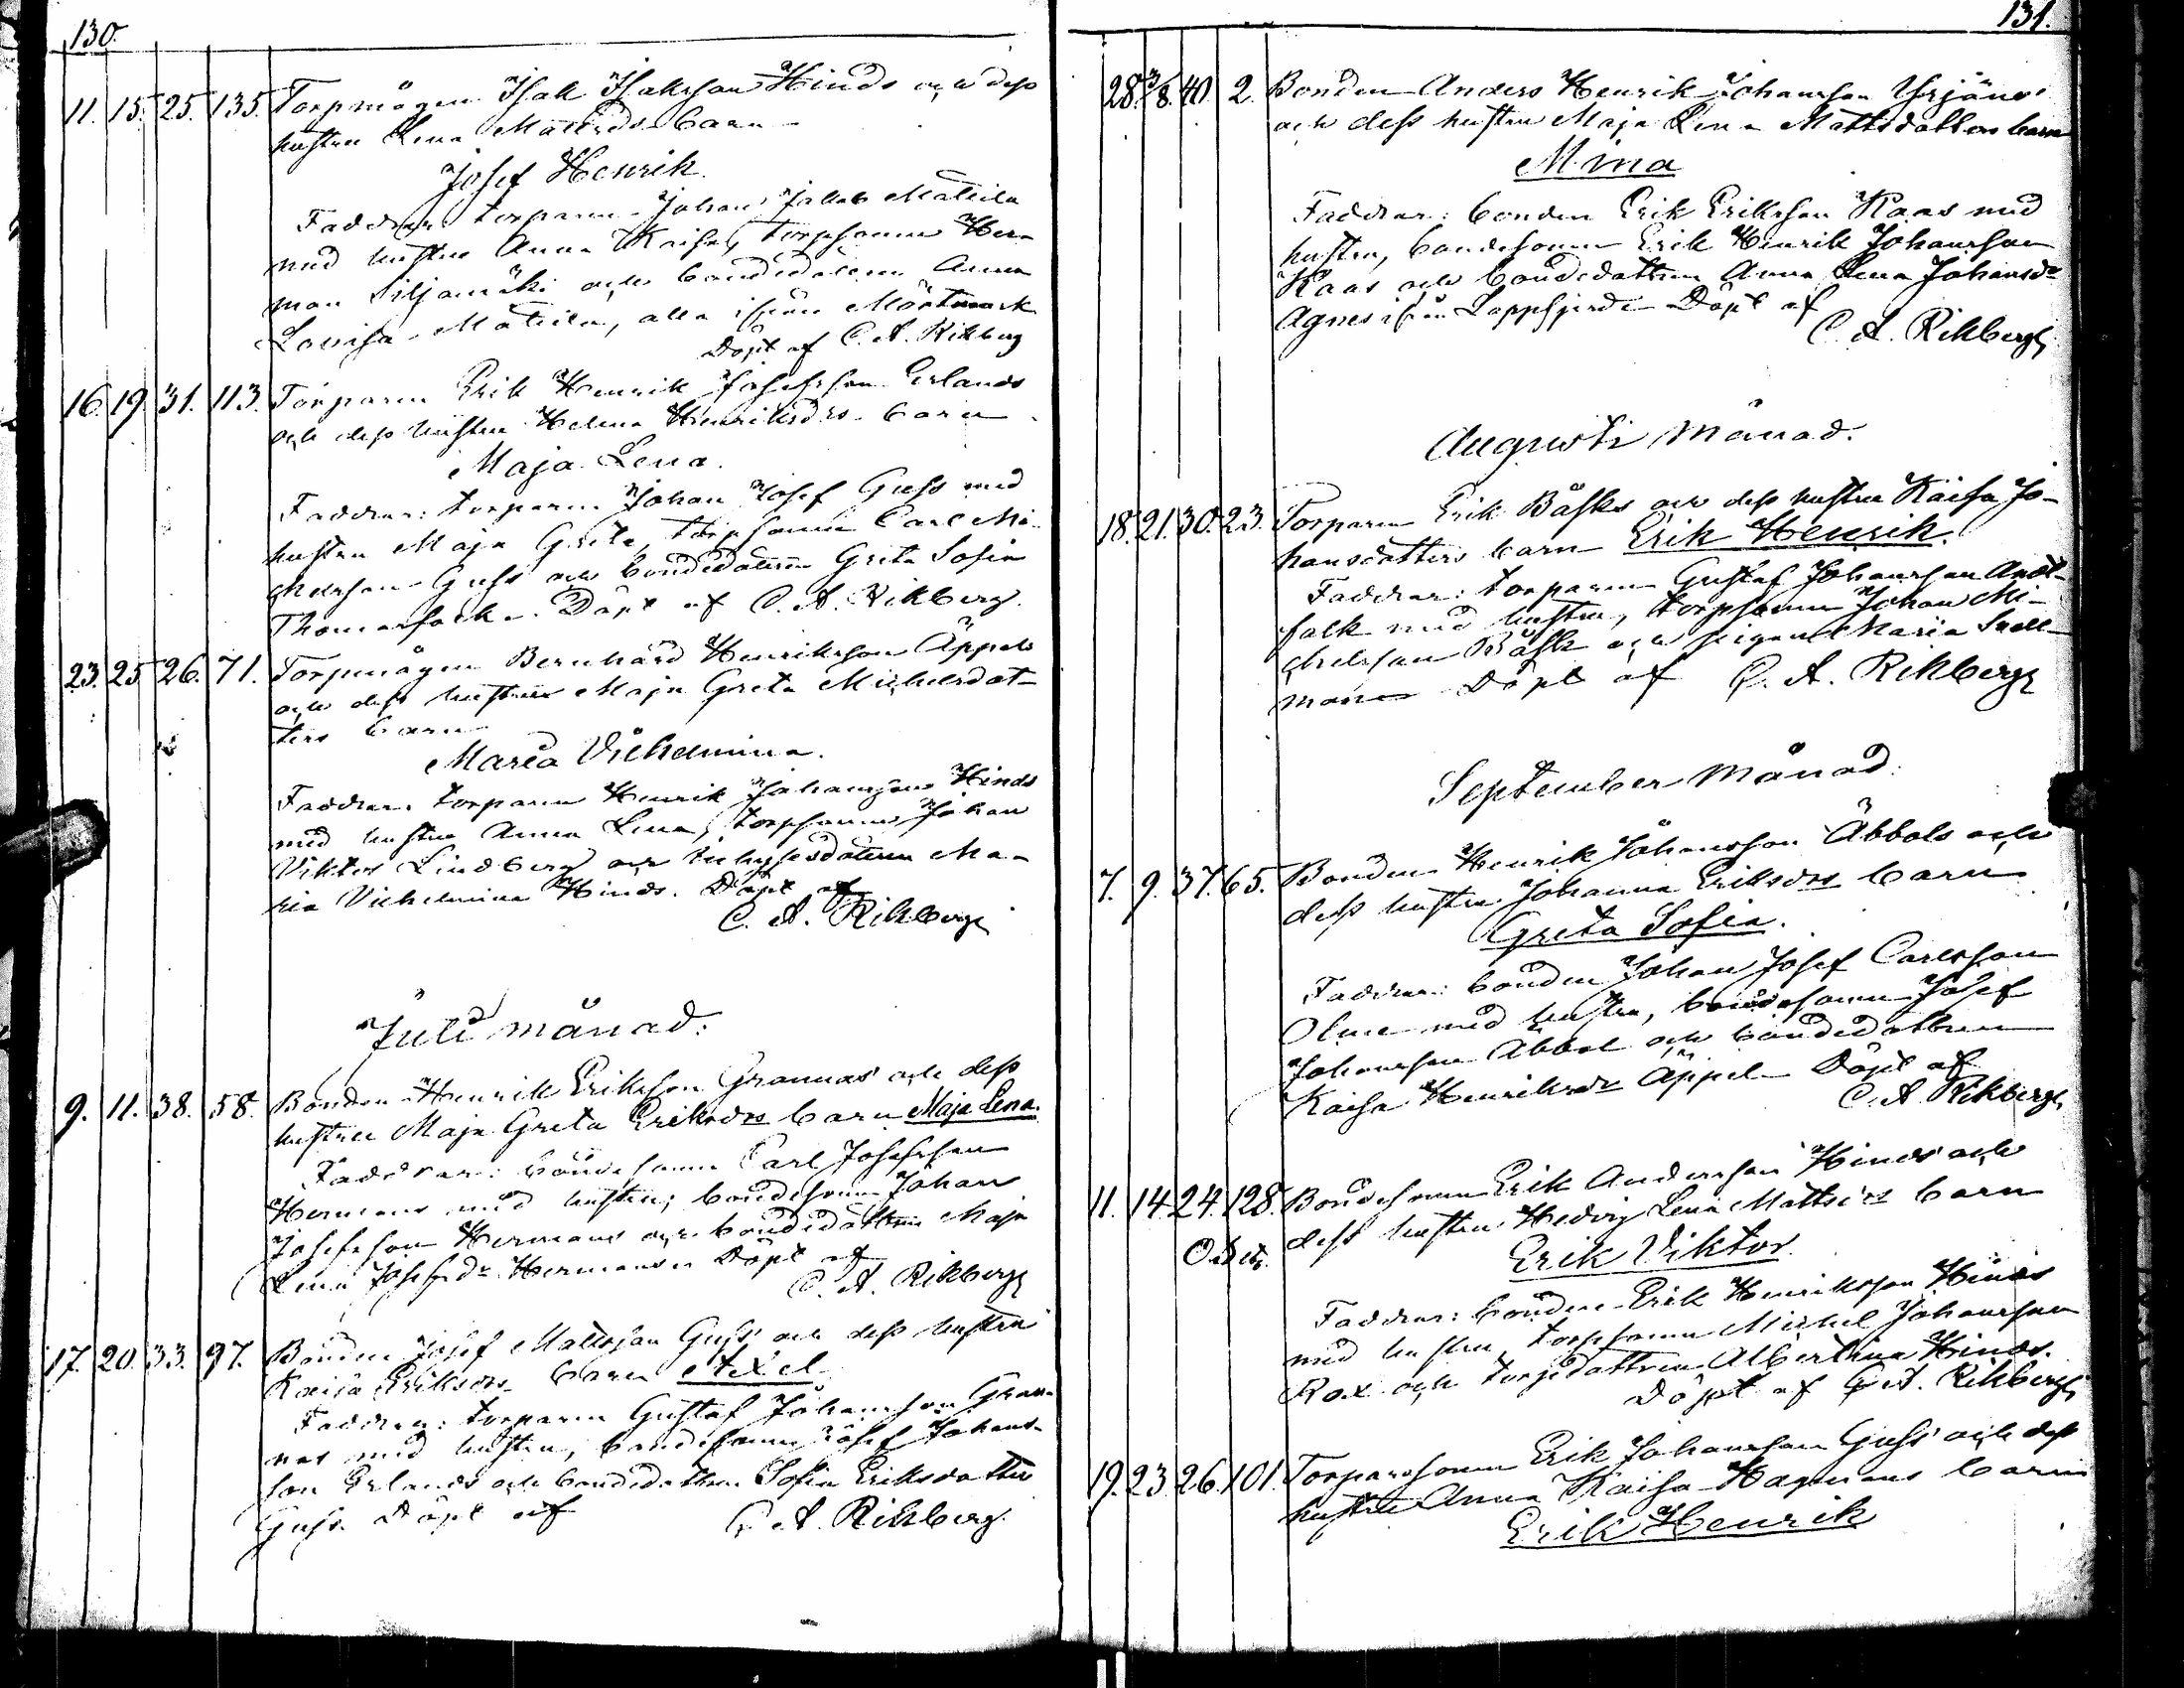 130.
11. 15. 25. 135. Torpmågen Isak Isaksson Hinds och dess
hustru Lena Mattsdrs barn
Josef Henrik.
Faddrar: torparen Johan Jakob Mattila
med hustru Anna Kaisa, torpsonen Her-
man Siljamäki och bondedottren Anna
Lovisa Mattila, alla ifrån Mörtmark
Döpt af C. A. Rikberg
16. 19. 31. 113. Torparen Erik Henrik Josefsson Erlands
och dess hustru Helena Henriksdrs barn
Maja Lena.
Faddrar: torparen Johan Josef Guss med
hustru Maja Greta, torpsonen Carl Mi-
chelsson Guss och bondedottren Greta Sofia
Thomasfack. Döpt af C. A. Rikberg.
23. 25. 26. 71. Torpmågen Bernhard Henriksson Äppels
och dess hustrus Maja Greta Michelsdot-
ters barn
Maria Vilhelmina.
Faddrar: torparen Henrik Johansson Hinds
med hustru Anna Lena, torpsonen Johan
Viktor Lindberg och inhysesdottren Ma-
ria Vilhelmina Hinds. Döpt af
C. A. Rikberg
Juli månad.
9. 11. 38. 58. Bonden Henrik Eriksson Grannas och dess
hustru Maja Greta Eriksdrs barn Maja Lena.
Faddrar: bondesonen Carl Josefsson
Hermans med hustru, bondesonen Johan
Josefsson Hermans och bondedottren Maja
Lena Josefsdr Hermans. Döpt af
C. A. Rikberg
17. 20. 33. 97. Bonden Josef Mattsson Guss' och dess hustru
Kaisa Eriksdrs barn Axel
Faddrar: torparen Gustaf Johansson Gran-
nas med hustru, bondesonen Josef Johans-
son Erlands och bondedottren Sofia Eriksdotter
Guss. Döpt af C. A. Rikberg.
131.
28. 3/8. 40. 2. Bonden Anders Henrik Johansson Yrjäns
och dess hustru Maja Lena Mattsdotters barn
Mina
Faddrar: bonden Erik Eriksson Kaas med
hustru, bondesonen Erik Henrik Johansson
Kaas och bondedottren Anna Lena Johansdr
Agnes ifrån Lappfjerd. Döpt af
C. A. Rikberg
Augusti månad.
18. 21. 30. 23. Torparen Erik Båsks och dess hustru Kaisa Jo-
hansdotters barn Erik Henrik.
Faddrar: torparen Gustaf Johansson And-
falk med hustru, torpsonen Johan Mi-
chelsson Båsk och pigan Maria Snell-
man. Döpt af C. A. Rikberg
September månad.
7. 9. 37. 65. Bonden Henrik Johansson Åbbols och
dess hustru Johanna Eriksdrs barn
Greta Sofia.
Faddrar: bonden Johan Josef Carlsson
Olme med hustru, bondesonen Josef
Johansson Åbbol och bondedottren
Kaisa Henriksdr Äppel. Döpt af
C. A. Rikberg
11. 14. 24. 128. Bondesonen Erik Andersson Hinds och
dess hustru Hedvig Lena Mattsdrs barn
Erik Viktor
Faddrar: bonden Erik Henriksson Hinds
med hustru, torpsonen Michel Johansson
Rax och torpdottren Albertina Hinds.
Döpt af C. A. Rikberg
19. 23. 26. 101. Torparesonen Erik Johansson Guss' och dess
hustru Anna Kaisa Hagmans barn
Erik Henrik